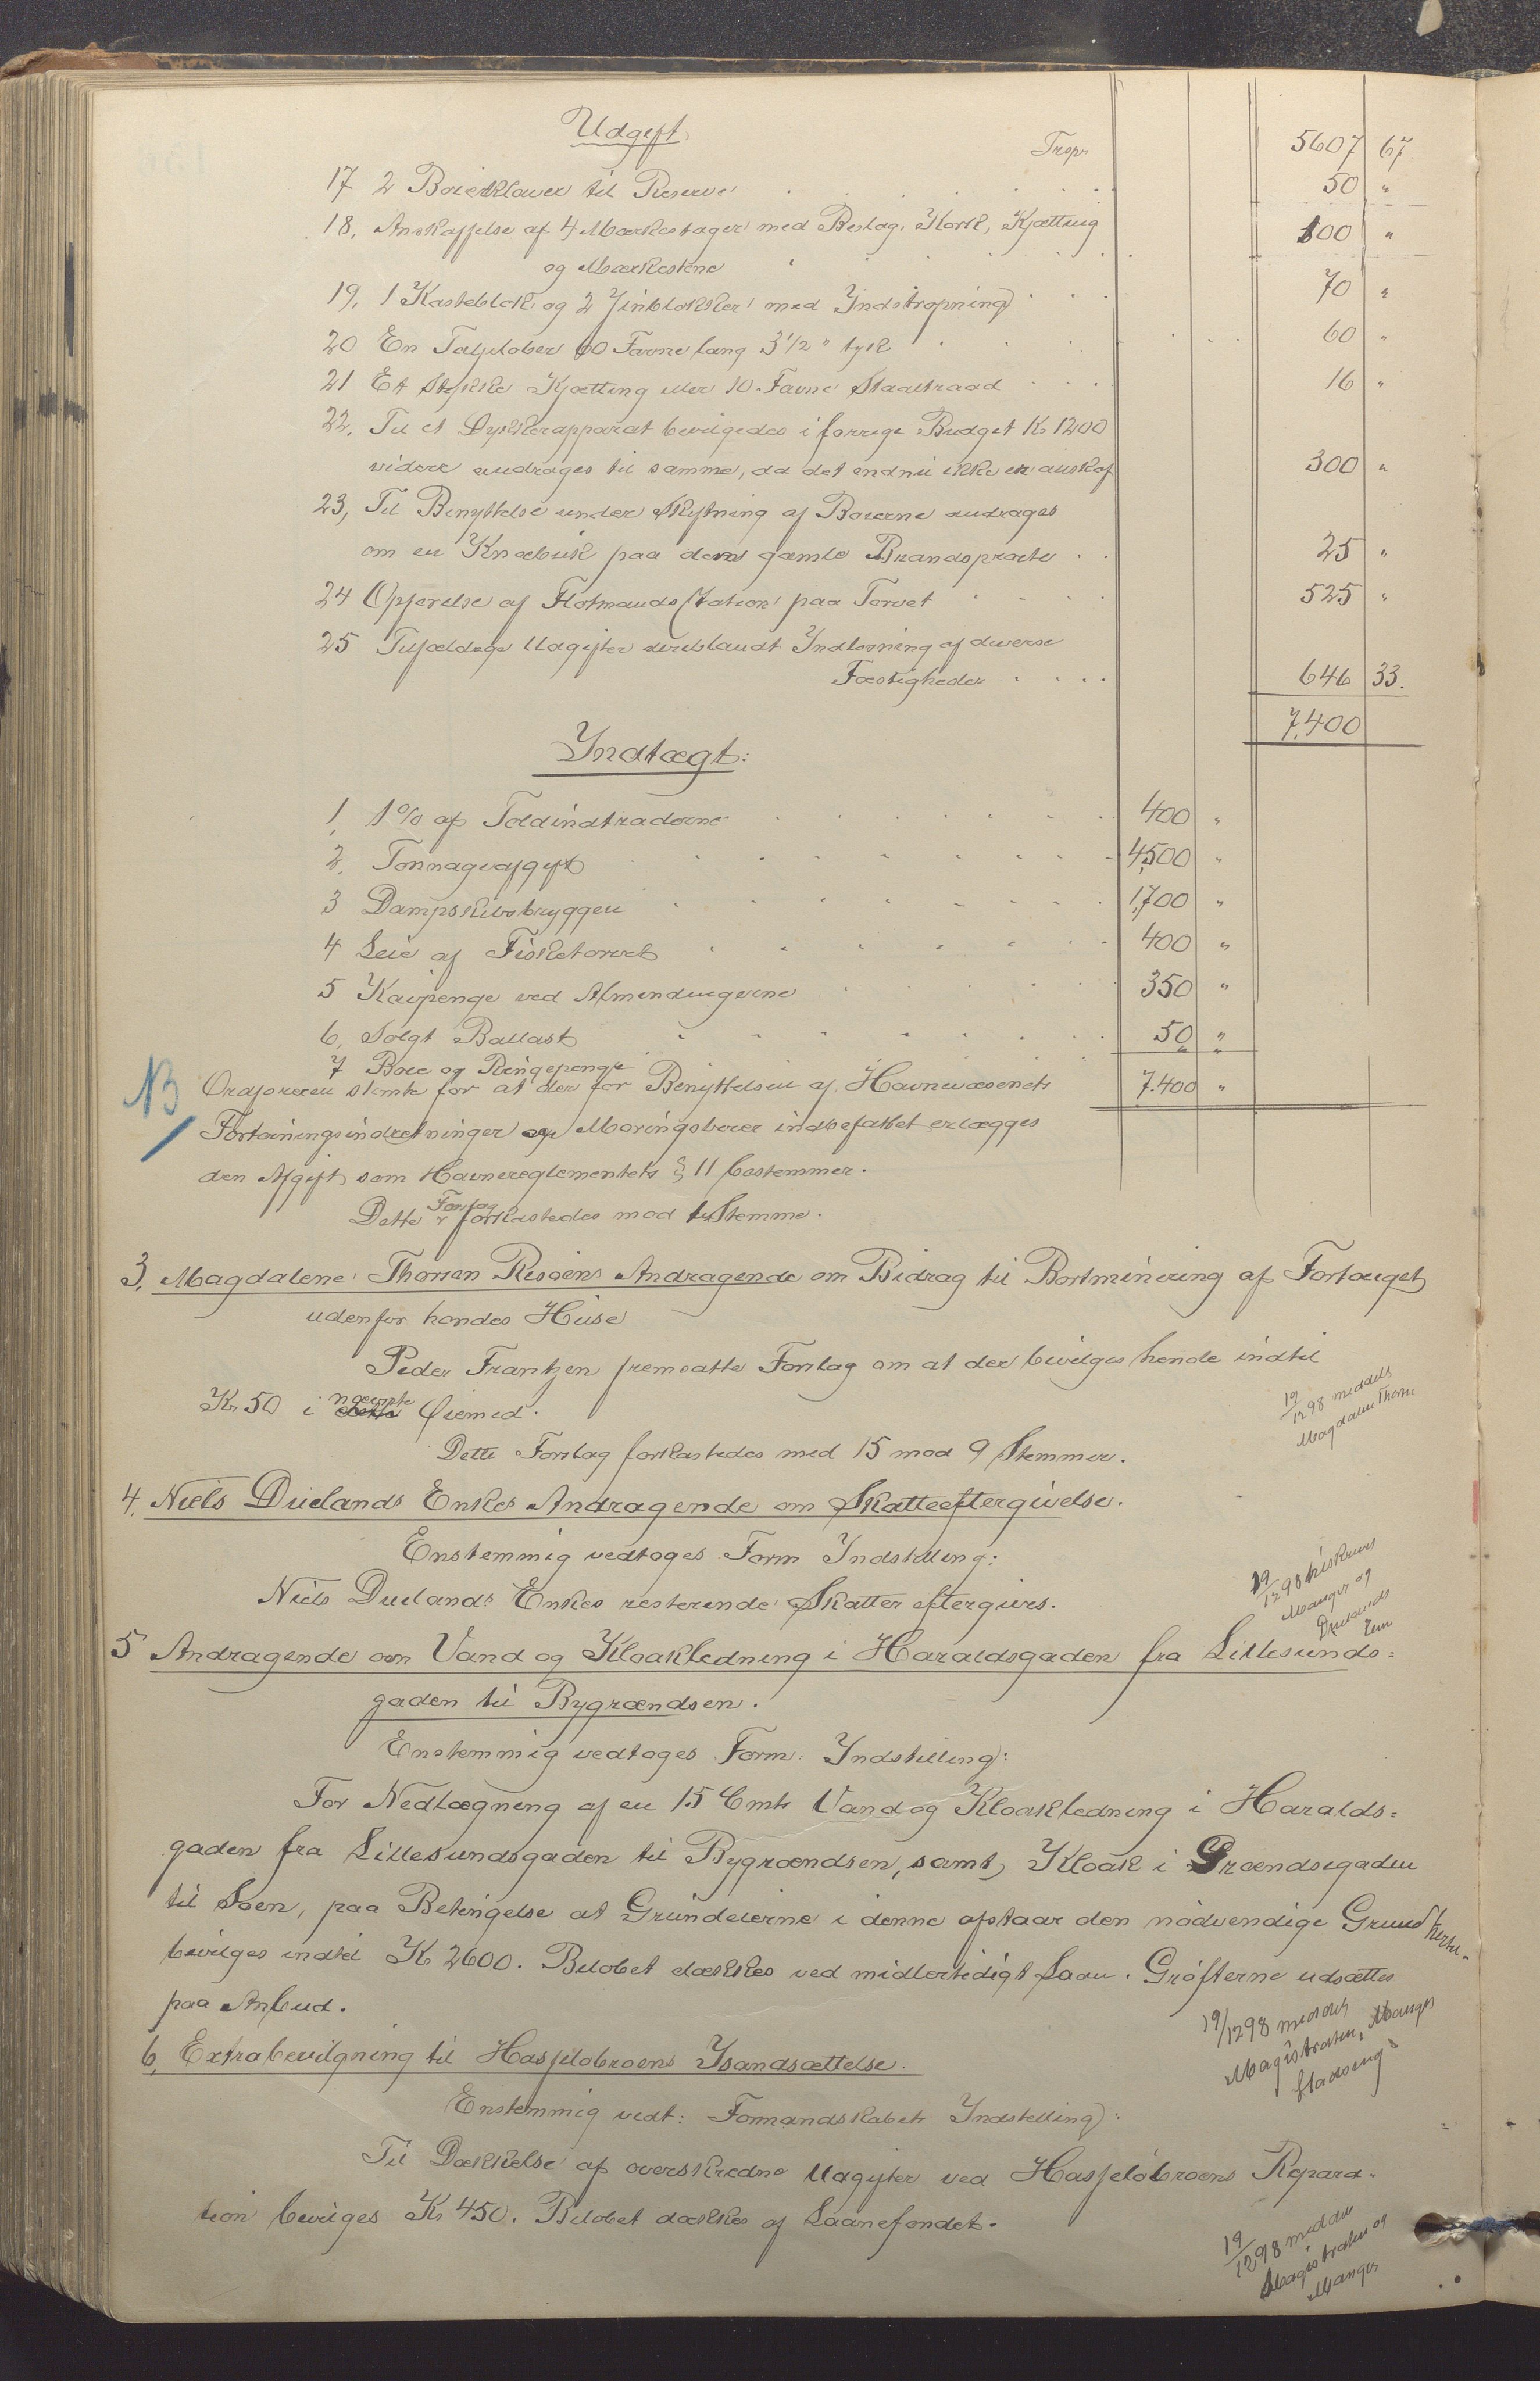 Udgift
Trsp. 5607 67.
17 2 Boieklover til Reserve 50 "
18, Anskaffelse af 4 Mærkestager med Beslag, Kork, Kjætting
og Mærkestene 100 "
19, 1 Kasteblok og 2 Jinblokker med Indstropning 70 "
20 En Taljeløber 60 Favne lang 3 1/2" tyk 60 "
21 Et Stykke Kjætting eller 10 Favne Staaltraad 16 "
22, Til et Dykkerapparat bevilgedes i forrige Budget Kr 1200
videre andrages til samme, da det endnu ikke er anskaf 300 "
23, Til Benyttelse under Flytning af Boierne andrages
om en Knæbuk paa den gamle Brandspraam 25 "
24 Opførelse af Flotmands Station paa Torvet 525 "
25 Tilfældige Udgifter deriblandt Indløsning af diverse
Fæstigheder 646 33.
7,400
Indtægt:
1, 1% af Toldindtraderne 400 "
2, Tonnageafgift 4500 "
3 Dampskibsbryggen 1,700 "
4 Leie af Fisketorvet 400 "
5 Kaipenge ved Almendingerne 350 "
6, Solgt Ballast 50 "
7 Boie og Ringepenge " "
NB Ordføreren stemte for at der for Benyttelsen af Havnevæsenets 7.400 "
Fortøiningsindretninger og Moringsboier indbefattet erlægges
den Afgift som Havnereglementets § 11 bestemmer.
Dette Forslag forkastedes mod 1 Stemme.
3, Magdalene Thorsen Risøens Andragende om Bidrag til Bortminering af Fortouget
udenfor hendes Huse
Peder Frantzen fremsatte Forslag om at der bevilges hende indtil
Kr 50 i nævnte Øiemed.
19/12 98 meddelt
Magdalene Thorsen
Dette Forslag forkastedes med 15 mod 9 Stemmer.
4, Niels Duelands Enkes Andragende om Skatteeftergivelse.
Enstemmig vedtoges Form Indstilling:
Niels Duelands Enkes resterende Skatter eftergives.
19/12 98 tilskrevet
Manger og
Duelands
Enke
5 Andragende om Vand og Kloakledning i Haraldsgaden fra Lillesunds=
gaden til Bygrændsen.
Enstemmig vedtages Form: Indstilling:
For Nedlægning af en 15 Cmtr Vand og Kloakledning i Haralds=
gaden fra Lillesundsgaden til Bygrændsen, samt, Kloak i Grændsegaden
til Søen, paa Betingelse at Grundeierne i denne afstaar den nødvendige Grund
bevilges indtil Kr 2600. Beløbet dækkes ved midlertidigt Laan. Grøfterne udsættes
paa Anbud.
19/12 98 meddelt
Magistraten, Manger
Stadsing:
6, Extrabevilgning til Hasseløbroens Isandsættelse.
Enstemmig vedt: Formandskabets Indstilling:
Til Dækkelse af overskredne Udgifter ved Hasseløbroens Repara-
tion bevilges Kr 450. Beløbet dækkes af Laanefondet.
19/12 98 meddelt
Magistraten og
Manger